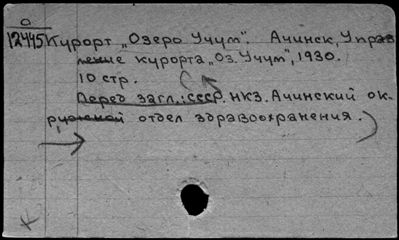 O
12445 Курорт „Озеро Учум". Ачинск, Управ
ление курорта „Оз. Учум", 1930.
10 стр.
Перед загл.: СССР. НКЗ. Ачинский ок-
ружной отдел здравоохранения.